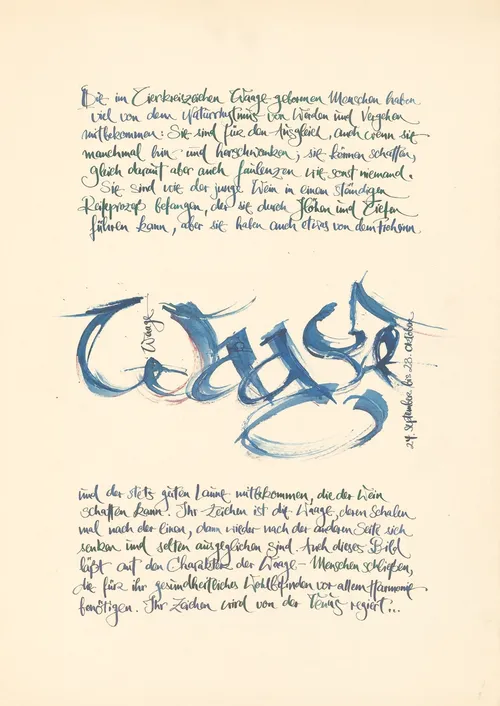 Die im Tierkreiszeichen Waage geborenen Menschen haben
viel von dem Naturrhythmus von Werden und Vergehen
mitbekommen: Sie sind für den Ausgleich, auch wenn sie
manchmal hin- und herschwanken; sie können schaffen,
gleich darauf aber auch faulenzen wie sonst niemand.
Sie sind wie der junge Wein in einem ständigen
Reifeprozeß befangen, der sie durch Höhen und Tiefen
führen kann, aber sie haben auch etwas von dem Frohsinn
Waage
Waage
24. September bis 23. Oktober
und der stets guten Laune mitbekommen, die der Wein
schaffen kann. Ihr Zeichen ist die Waage, deren Schalen
mal nach der einen, dann wieder nach der anderen Seite sich
senken und selten ausgeglichen sind. Auch dieses Bild
läßt auf den Charakter der Waage-Menschen schließen,
die für ihr gesundheitliches Wohlbefinden vor allem Harmonie
benötigen. Ihr Zeichen wird von der Venus regiert...